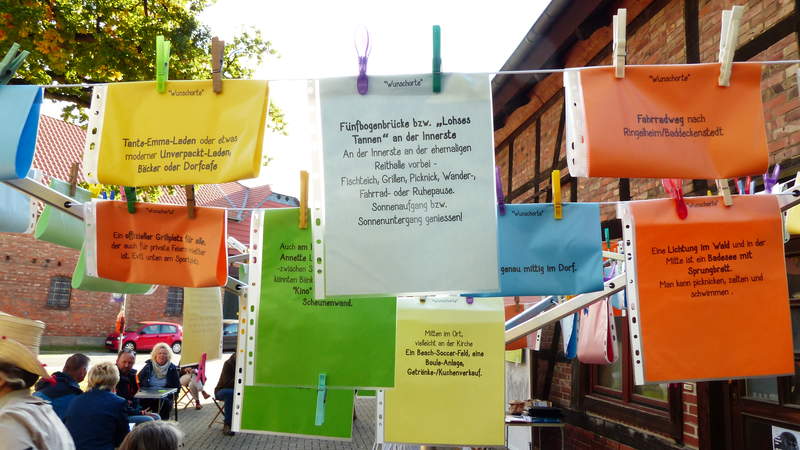 "Wunschorte"
Tante-Emma-Laden oder etwas
moderner Unverpackt-Laden,
Bäcker oder Dorfcafe
"Wunschorte"
Fünfbogenbrücke bzw. „Lohses
Tannen" an der Innerste
An der Innerste an der ehemaligen
Reithalle vorbei -
Fischteich, Grillen, Picknick, Wander-,
Fahrrad- oder Ruhepause.
Sonnenaufgang bzw.
Sonnenuntergang geniessen!
"Wunschorte"
Fahrradweg nach
Ringelheim/Baddeckenstedt
"Wunschorte"
Ein offizieller Grillplatz für alle,
der auch für private Feiern mietbar
ist. Evtl. unten am Sportplatz.
Auch am
Annette
-zwischen
könnten Bänk
"Kino"
Scheunenwand.
"Wunschorte"
genau mittig im Dorf.
"Wunschorte"
Eine Lichtung im Wald und in der
Mitte ist ein Badesee mit
Sprungbrett.
Man kann picknicken, zelten und
schwimmen .
Mitten im Ort,
vielleicht an der Kirche
Ein Beach-Soccer-Feld, eine
Boule-Anlage,
Getränke-/Kuchenverkauf.